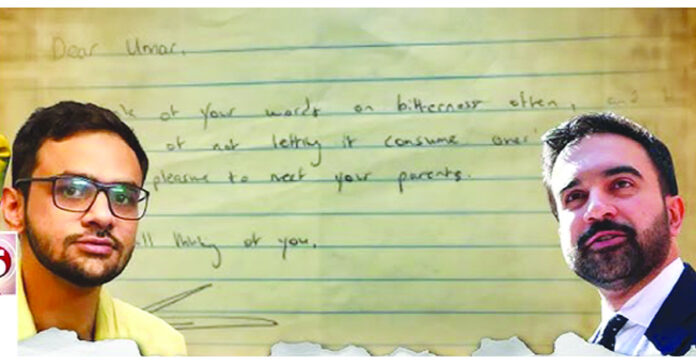 Dear Umar,
of your words on bitterness often, and
of not letting it consume ones
pleasure to meet your parents.
all thinking of you,